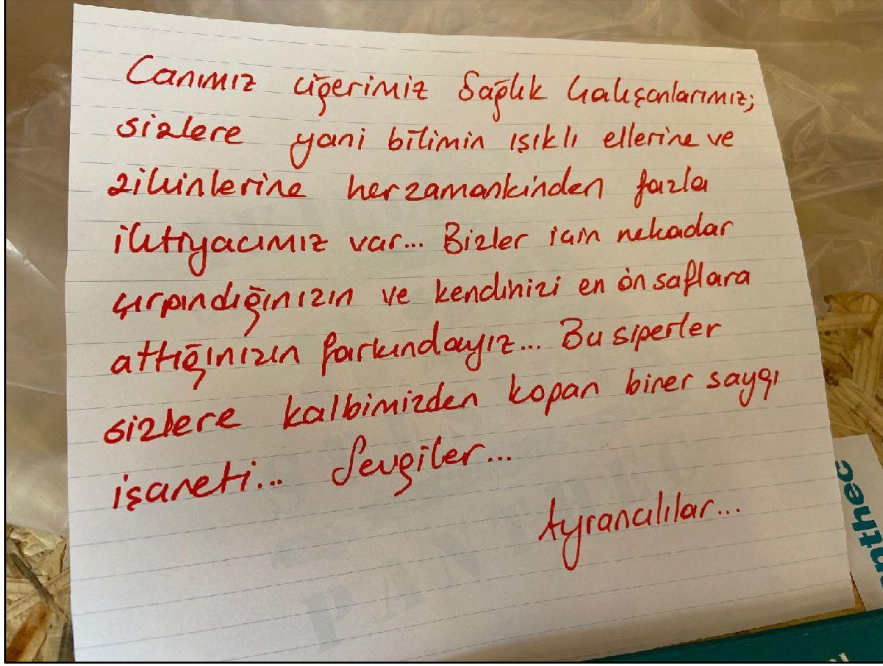 Canımız ciğerimiz Sağlık Çalışanlarımız;
sizlere yani bilimin ışıklı ellerine ve
zihinlerine herzamankinden fazla
ihtiyacımız var... Bizler için nekadar
çırpındığınızın ve kendinizi en ön saflara
attığınızın farkındayız... Bu siperler
sizlere kalbimizden kopan birer saygı
işareti... Sevgiler...
Ayrancılılar...
anthec
PANTHEC